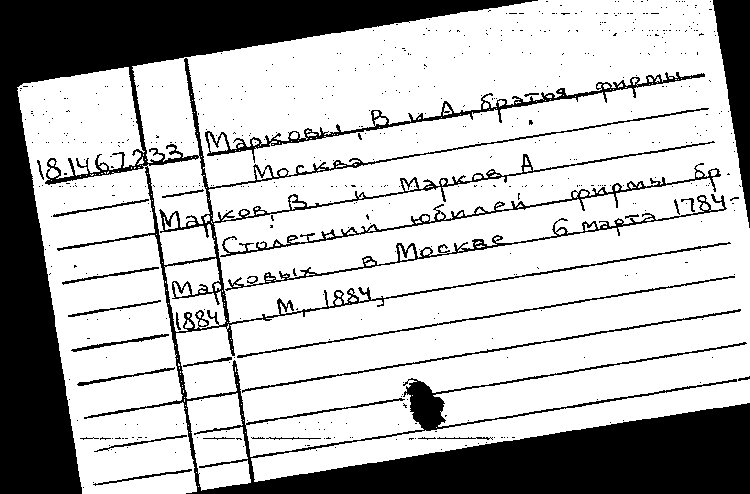 18.146.7.233 Марковы, В и А, братья, фирмы
Москва
Марков, В. и Марков, А
Столетний юбилей фирмы бр.
Марковых в Москве 6 марта 1784-
1884 М, 1884,